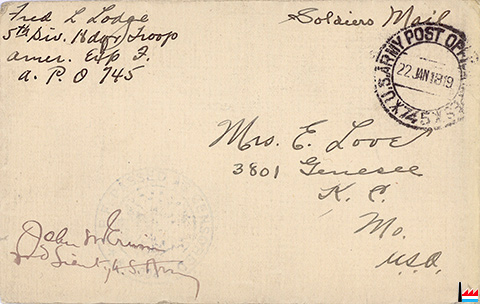 Fred L Lodge
5th Div. Hdqr Troop
Amer. Exp F.
A. P. O 745
Soldiers Mail
U.S. ARMY POST OFFICE
22 JAN 1919
745
Mrs. E. Love
3801 Genesee
K. C.
Mo.
U.S.A.
John
2nd Lieut, U.S. Army